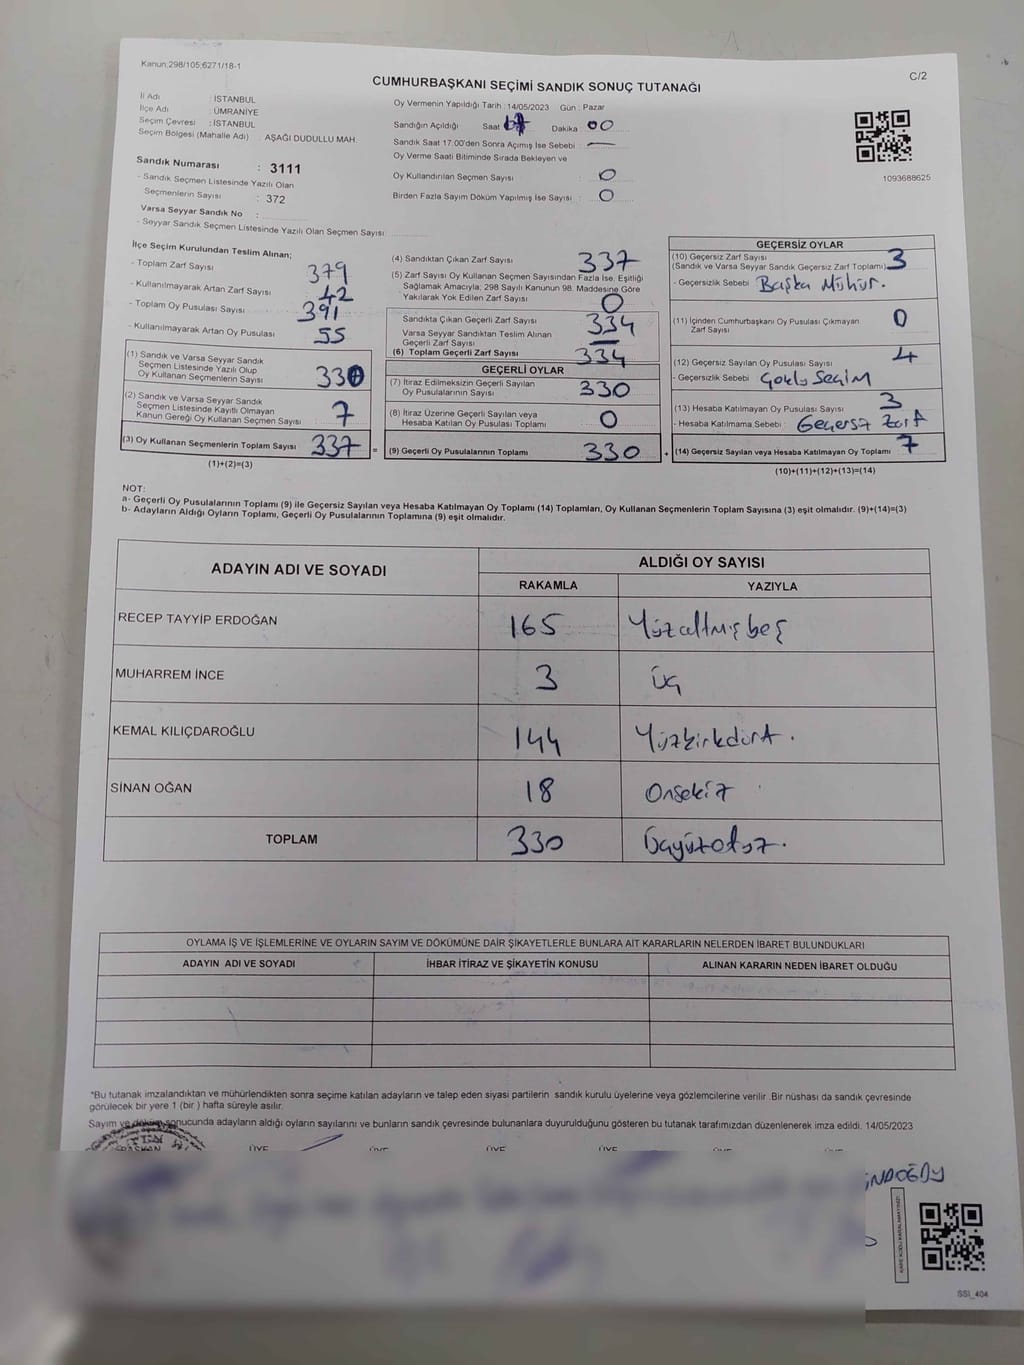 Kanun;298/105;6271/18-1
C/2
CUMHURBAŞKANI SEÇİMİ SANDIK SONUÇ TUTANAĞI
İl Adı : İSTANBUL
İlçe Adı : ÜMRANİYE
Seçim Çevresi : İSTANBUL
Seçim Bölgesi (Mahalle Adı) : AŞAĞI DUDULLU MAH.
Sandık Numarası : 3111
- Sandık Seçmen Listesinde Yazılı Olan
Seçmenlerin Sayısı : 372
Varsa Seyyar Sandık No :
- Seyyar Sandık Seçmen Listesinde Yazılı Olan Seçmen Sayısı:
Oy Vermenin Yapıldığı Tarih :14/05/2023 Gün : Pazar
Sandığın Açıldığı Saat Dakika : 00
Sandık Saat 17:00'den Sonra Açımış İse Sebebi : —
Oy Verme Saati Bitiminde Sırada Bekleyen ve
Oy Kullandırılan Seçmen Sayısı : 0
Birden Fazla Sayım Döküm Yapılmış İse Sayısı : 0
1093688625
İlçe Seçim Kurulundan Teslim Alınan;
- Toplam Zarf Sayısı 379
- Kullanılmayarak Artan Zarf Sayısı 42
- Toplam Oy Pusulası Sayısı 391
- Kullanılmayarak Artan Oy Pusulası 55
(1) Sandık ve Varsa Seyyar Sandık
Seçmen Listesinde Yazılı Olup
Oy Kullanan Seçmenlerin Sayısı 330
(2) Sandık ve Varsa Seyyar Sandık
Seçmen Listesinde Kayıtlı Olmayan
Kanun Gereği Oy Kullanan Seçmen Sayısı 7
(3) Oy Kullanan Seçmenlerin Toplam Sayısı 337 =
(1)+(2)=(3)
(4) Sandıktan Çıkan Zarf Sayısı 337
(5) Zarf Sayısı Oy Kullanan Seçmen Sayısından Fazla İse, Eşitliği
Sağlamak Amacıyla, 298 Sayılı Kanunun 98. Maddesine Göre
Yakılarak Yok Edilen Zarf Sayısı 0
Sandıkta Çıkan Geçerli Zarf Sayısı 334
Varsa Seyyar Sandıktan Teslim Alınan
Geçerli Zarf Sayısı —
(6) Toplam Geçerli Zarf Sayısı 334
GEÇERLİ OYLAR
(7) İtiraz Edilmeksizin Geçerli Sayılan
Oy Pusulalarının Sayısı 330
(8) İtiraz Üzerine Geçerli Sayılan veya
Hesaba Katılan Oy Pusulası Toplamı 0
(9) Geçerli Oy Pusulalarının Toplamı 330 +
GEÇERSİZ OYLAR
(10) Geçersiz Zarf Sayısı
(Sandık ve Varsa Seyyar Sandık Geçersiz Zarf Toplamı) 3
- Geçersizlik Sebebi Başka Mühür.
(11) İçinden Cumhurbaşkanı Oy Pusulası Çıkmayan
Zarf Sayısı 0
(12) Geçersiz Sayılan Oy Pusulası Sayısı 4
- Geçersizlik Sebebi Çoklu Seçim
(13) Hesaba Katılmayan Oy Pusulası Sayısı 3
- Hesaba Katılmama Sebebi : Geçersiz Zarf
(14) Geçersiz Sayılan veya Hesaba Katılmayan Oy Toplamı 7
(10)+(11)+(12)+(13)=(14)
NOT:
a- Geçerli Oy Pusulalarının Toplamı (9) ile Geçersiz Sayılan veya Hesaba Katılmayan Oy Toplamı (14) Toplamları, Oy Kullanan Seçmenlerin Toplam Sayısına (3) eşit olmalıdır. (9)+(14)=(3)
b- Adayların Aldığı Oyların Toplamı, Geçerli Oy Pusulalarının Toplamına (9) eşit olmalıdır.
ADAYIN ADI VE SOYADI
ALDIĞI OY SAYISI
RAKAMLA YAZIYLA
RECEP TAYYİP ERDOĞAN 165 Yüzaltmışbeş
MUHARREM İNCE 3 üç
KEMAL KILIÇDAROĞLU 144 Yüzkırkdört.
SİNAN OĞAN 18 Onsekiz
TOPLAM 330 üçyüzotuz.
OYLAMA İŞ VE İŞLEMLERİNE VE OYLARIN SAYIM VE DÖKÜMÜNE DAİR ŞİKAYETLERLE BUNLARA AİT KARARLARIN NELERDEN İBARET BULUNDUKLARI
ADAYIN ADI VE SOYADI İHBAR İTİRAZ VE ŞİKAYETİN KONUSU ALINAN KARARIN NEDEN İBARET OLDUĞU
*Bu tutanak imzalandıktan ve mühürlendikten sonra seçime katılan adayların ve talep eden siyasi partilerin sandık kurulu üyelerine veya gözlemcilerine verilir .Bir nüshası da sandık çevresinde
görülecek bir yere 1 (bir ) hafta süreyle asılır.
Sayım ve döküm sonucunda adayların aldığı oyların sayılarını ve bunların sandık çevresinde bulunanlara duyurulduğunu gösteren bu tutanak tarafımızdan düzenlenerek imza edildi. 14/05/2023
ÜYE ÜYE ÜYE ÜYE ÜYE
SSI_404